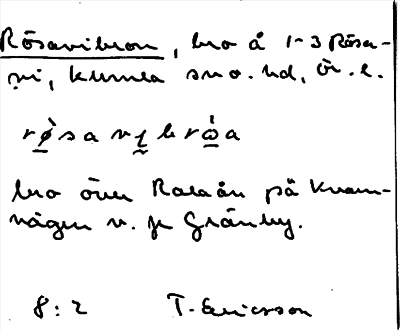 Rösavibron, bro å 1-3 Rösa-
vi, Kumla sn o. hd, Ör. l.
rø̀savḭbrω̇a
bro över Ralaån på Kvarn-
vägen v. fr Gränby.
8:2 T. Ericsson